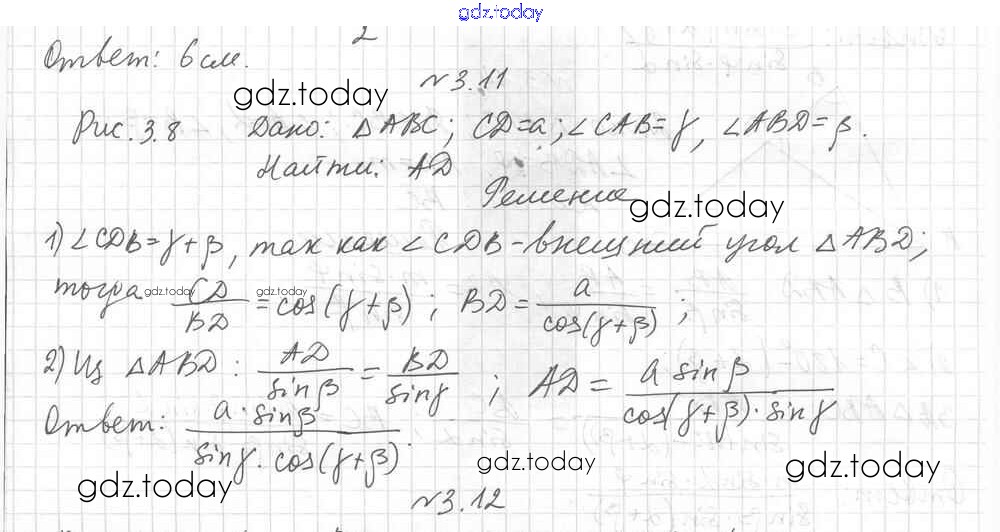 gdz.today
2
Ответ: 6 см.
№3.11
gdz.today
Рис. 3.8 Дано: △ABC; CD=a; ∠CAB=γ, ∠ABD=β.
Найти: AD
Решение
gdz.today
1) ∠CDB=γ+β, так как ∠CDB - внешний угол △ABD;
тогда gdz.today CD/BD gdz.today = cos(γ+β); BD = a/cos(γ+β);
2) Из △ABD: AD/sinβ = BD/sinγ; AD = a sinβ/cos(γ+β)·sinγ
Ответ: a·sinβ/sinγ·cos(γ+β).
gdz.today gdz.today gdz.today
№3.12